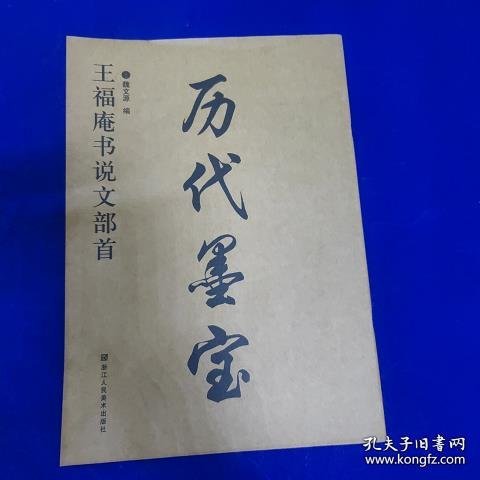 历代墨宝
魏文源 编
王福庵书说文部首
浙江人民美术出版社
孔夫子旧书网
www.kongfz.com